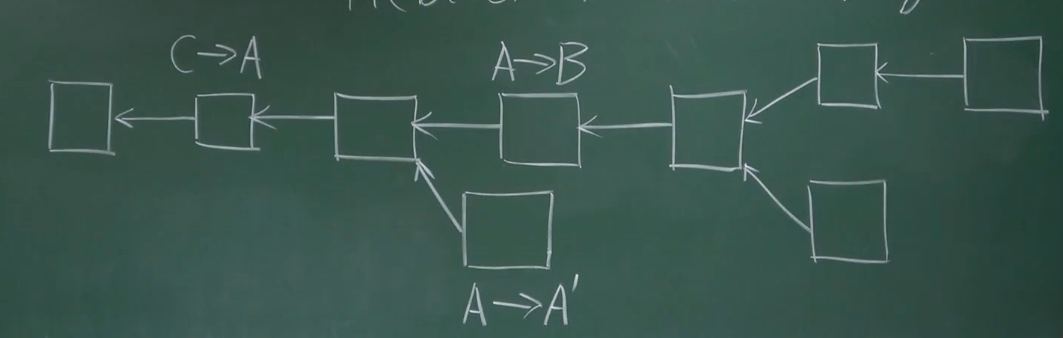 C→A
A→B
A→A'